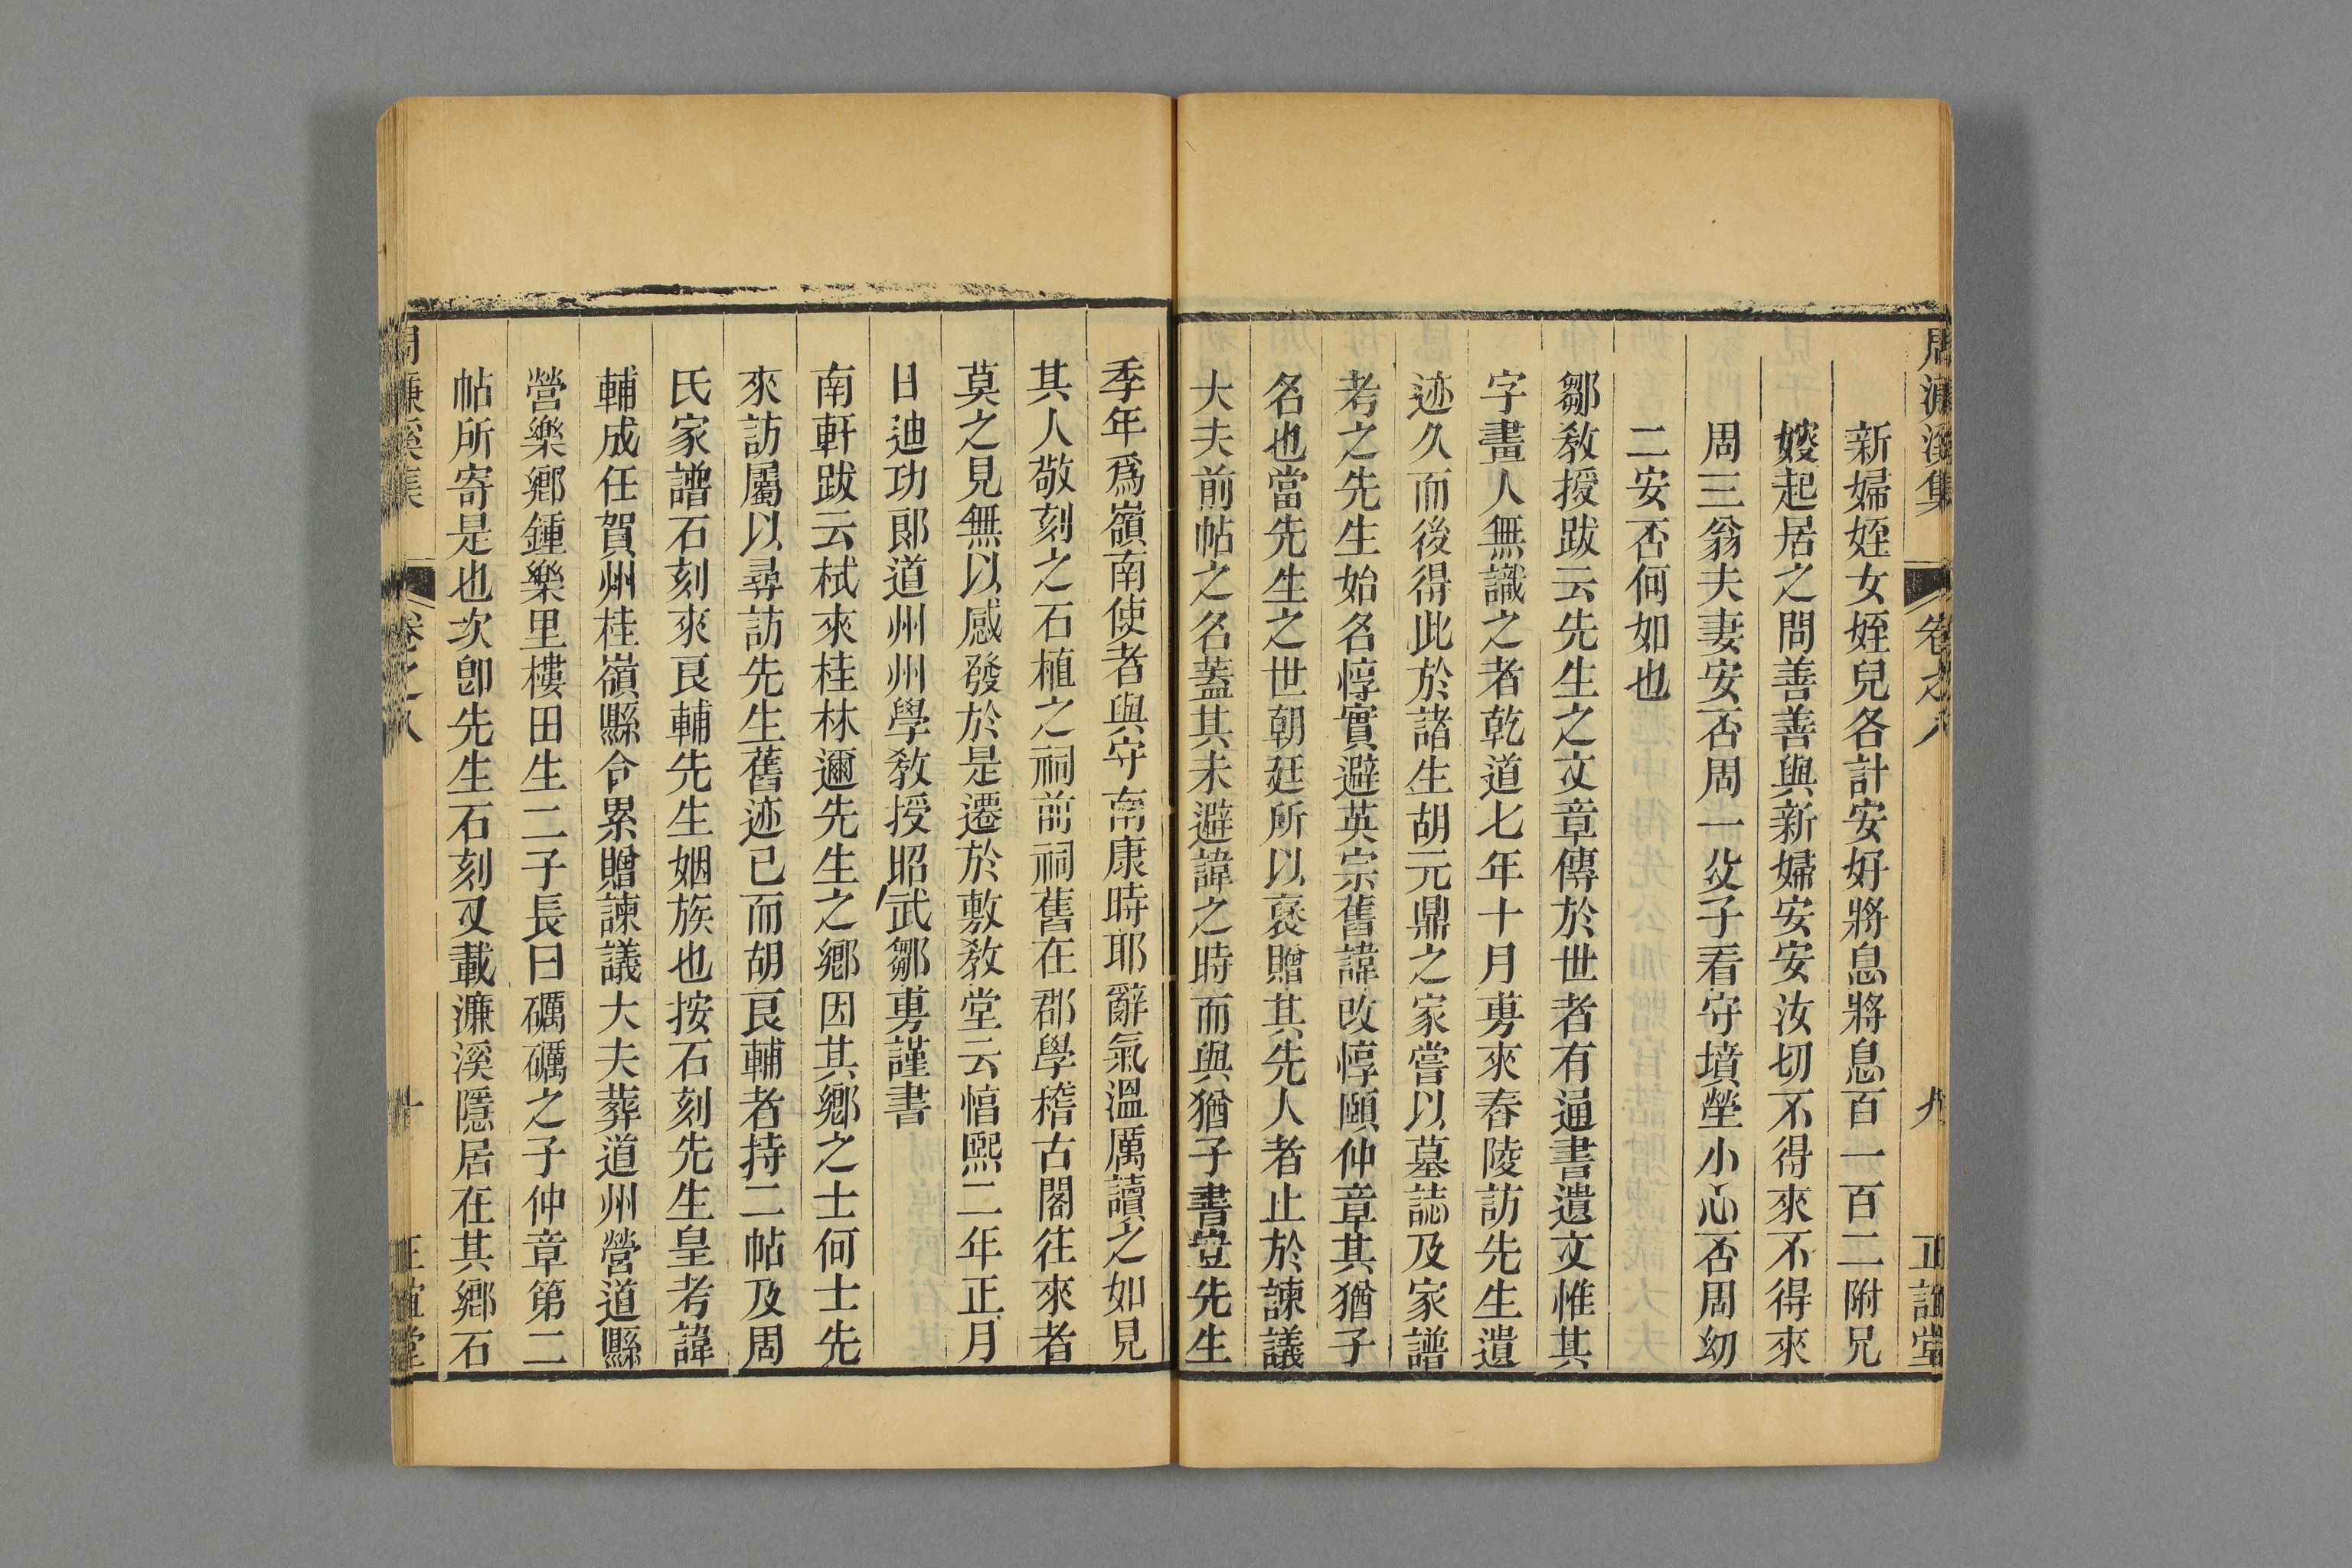 周濂溪集 卷之八 九 正誼堂
新婦姪女姪兒各計安好將息將息百一百二附兄
嫂起居之問善善與新婦安安汝切不得來不得來
周三翁夫妻安否周一父子看守墳塋小心否周幼
二安否何如也
鄒敎授跋云先生之文章傳於世者有通書遺文惟其
字畫人無識之者乾道七年十月旉來舂陵訪先生遺
迹久而後得此於諸生胡元鼎之家嘗以墓誌及家譜
考之先生始名惇實避英宗舊諱改惇頤仲章其猶子
名也當先生之世朝廷所以褒贈其先人者止於諫議
大夫前帖之名蓋其未避諱之時而與猶子書豈先生
季年爲嶺南使者與守南康時耶辭氣溫厲讀之如見
其人敬刻之石植之祠前祠舊在郡學稽古閣往來者
莫之見無以感發於是遷於敷敎堂云淳熙二年正月
日迪功郎道州州學敎授昭武鄒旉謹書
南軒跋云栻來桂林邇先生之鄉因其鄉之士何士先
來訪屬以尋訪先生舊迹已而胡良輔者持二帖及周
氏家譜石刻來良輔先生姻族也按石刻先生皇考諱
輔成任賀州桂嶺縣令累贈諫議大夫葬道州營道縣
營樂鄉鍾樂里樓田生二子長曰礪礪之子仲章第二
帖所寄是也次卽先生石刻又載濂溪隱居在其鄉石
周濂溪集 卷之八 十 正誼堂